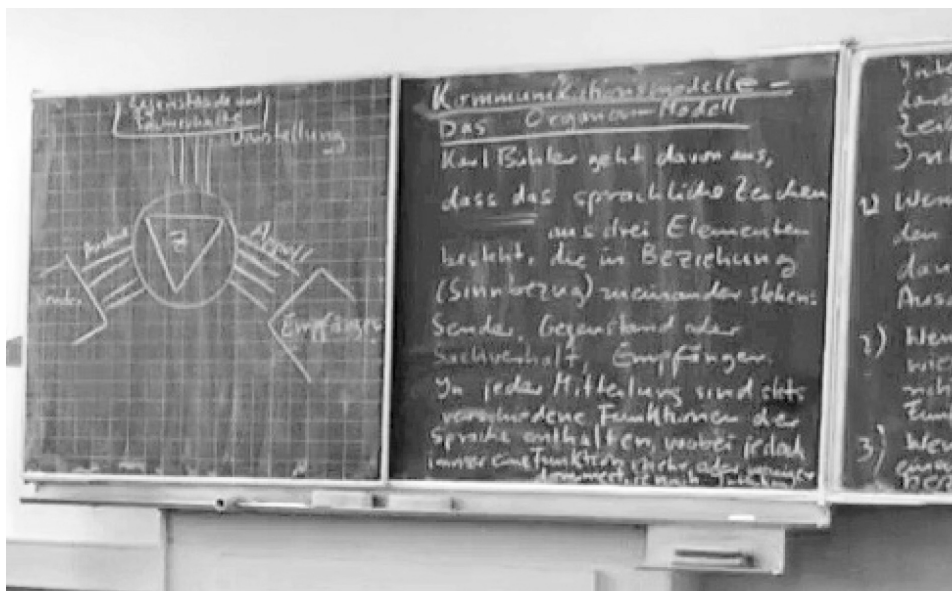 Gegenstände und
Sachverhalte
Darstellung
Ausdruck
Z
Appell
Sender
Empfänger
Kommunikationsmodelle -
Das Organon-Modell
Karl Bühler geht davon aus,
dass das sprachliche Zeichen
aus drei Elementen
besteht, die in Beziehung
(Sinnbezug) zueinander stehen:
Sender, Gegenstand oder
Sachverhalt, Empfänger.
In jeder Mitteilung sind stets
verschiedene Funktionen der
Sprache enthalten, wobei jedoch
immer eine Funktion mehr oder weniger
dominiert je nach
1) Wen
den
Aus
2) Wen
3) Wen